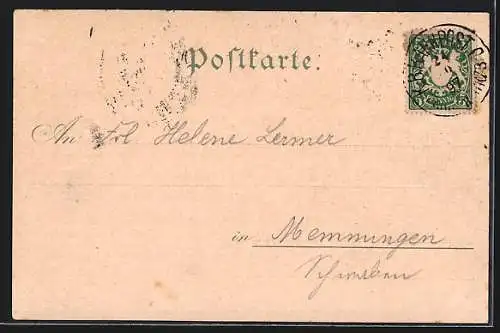 Postkarte.
An Frl Helene Lermer
in Memmingen
Schwaben